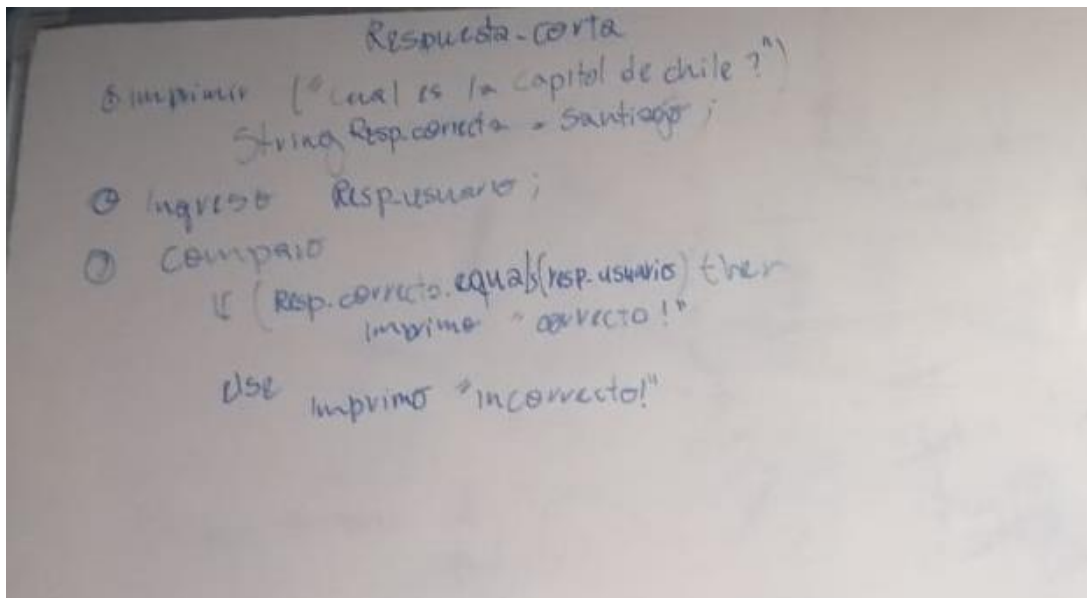 Respuesta-corta
Imprimir ("Cual es la capital de chile?")
String Resp.correcta = Santiago;
Ingreso Resp.usuario;
Comparo
if (Resp.correcto.equals(resp.usuario) then
imprimo "correcto!"
else imprimo "incorrecto!"